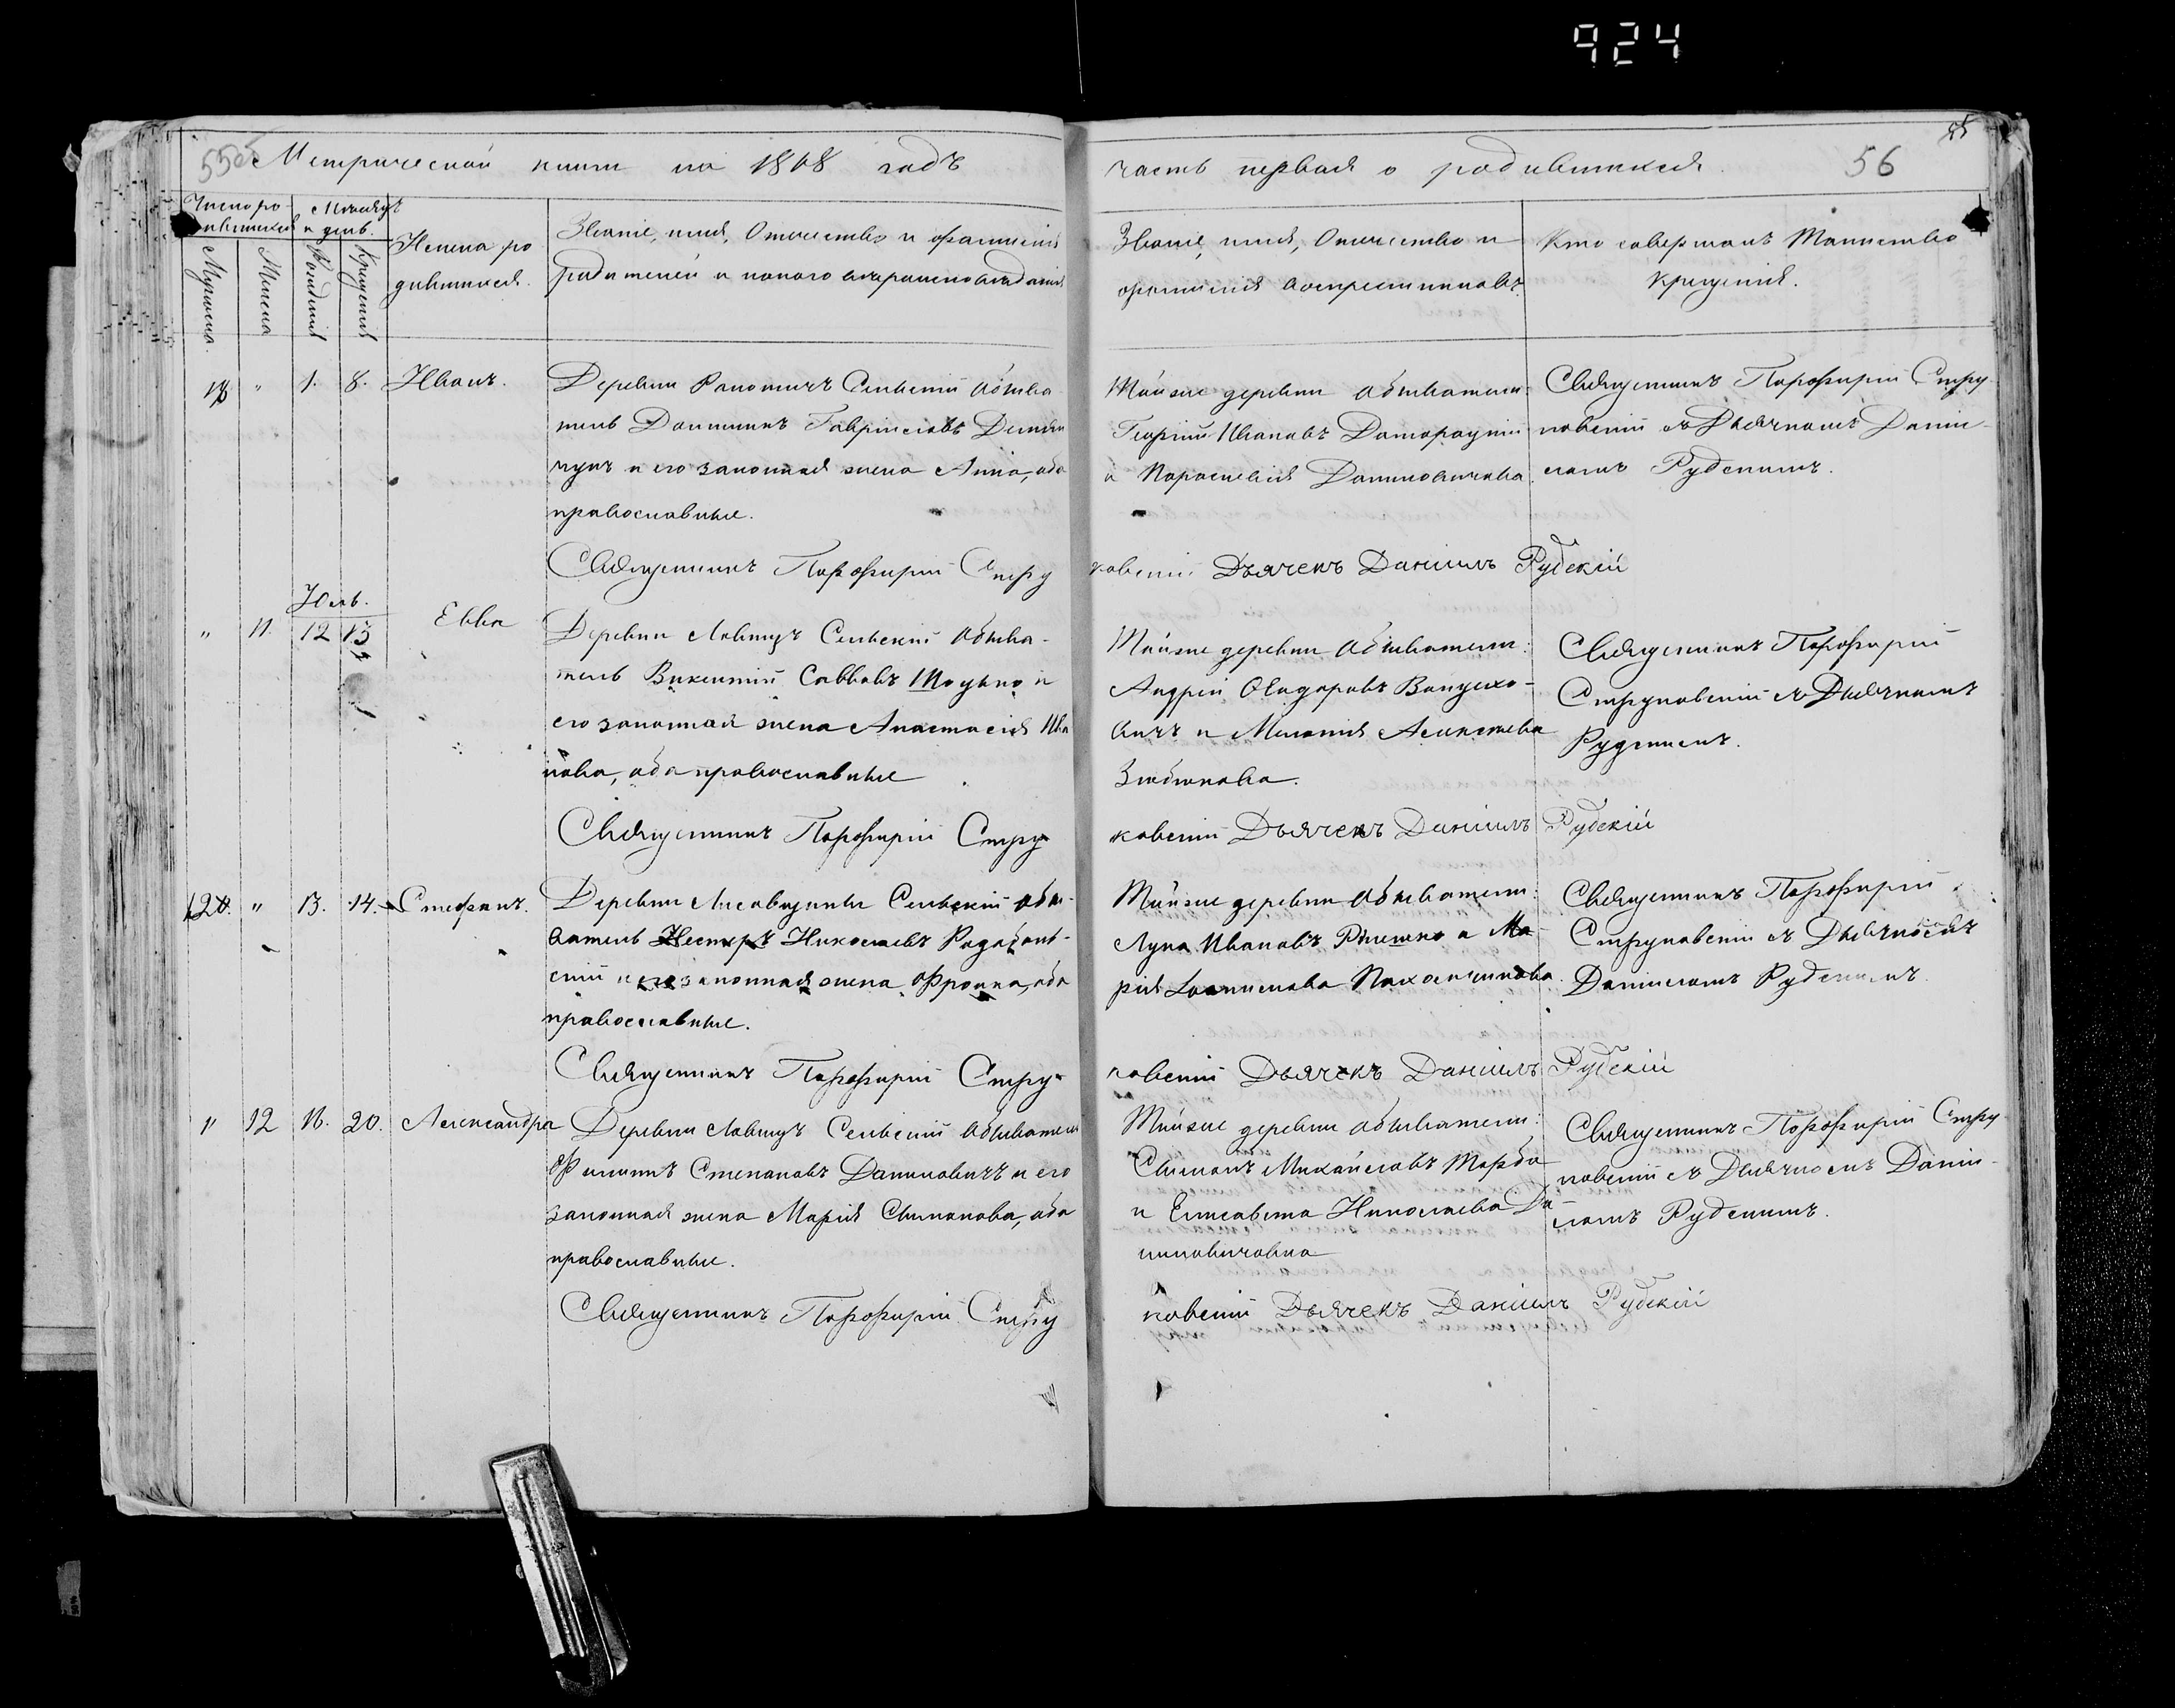 924
55об Метрической книги на 1868 годъ
часть первая о родившихся.
56
Число ро-
дившихся
Мѣсяцъ
и день.
Мужеска.
Женска
Рожденія
Крещенія
Имена ро
дившихся.
Званіе, имя, Отчество и фамилія
родителей и какого вѣроисповѣданія
Званіе, имя, Отчество и
фамилія воспріемниковъ.
Кто совершалъ Таинство
крещенія.
" 1. 8. Иванъ.
Деревни Сельскій обыва
тель Гавріиловъ
и его законная жена Анна, оба
православные.
Тойже деревни обыватели:
Георгій Ивановъ
и Параскевія Даниловичова.
Священникъ Порфирій Стру
ковскій съ Дьячкомъ Даніи-
ломъ Рудскимъ.
Священникъ Порфирій Стру
ковскій Дьячекъ Даніилъ Рудскій
Юль.
" 11. 12 13 Евва
Деревни Сельскій обыва-
тель Викентій Савловъ и
его законная жена Анастасія Ива
нова, оба православные
Тойже деревни обыватели:
Андрей
вичъ и Алексѣева
Священникъ Порфирій
Струковскій съ Дьячкомъ
Рудскимъ.
Священникъ Порфирій Стру
ковскій Дьячекъ Даніилъ Рудскій
120. " 13. 14. Стефанъ.
Деревни Сельскій обы-
ватель Несторъ Николаевъ
скій и его законная жена оба
православные.
Тойже деревни обыватели:
Лука Ивановъ и Ма-
рія
Священникъ Порфирій
Струковскій съ Дьячкомъ
Даніиломъ Рудскимъ.
Священникъ Порфирій Стру-
ковскій Дьячекъ Даніилъ Рудскій
" 12 16. 20. Александра
Деревни Сельскій обыватель
Филиппъ Степановъ Даниловичъ и его
законная жена Марія Симонова, оба
православные.
Тойже деревни обыватели:
Симонъ Михайловъ
и Елисавета Николаева Да
ниловичовна
Священникъ Порфирій Стру
ковскій съ Дьячкомъ Даніи-
ломъ Рудскимъ.
Священникъ Порфирій Стру
ковскій Дьячекъ Даніилъ Рудскій